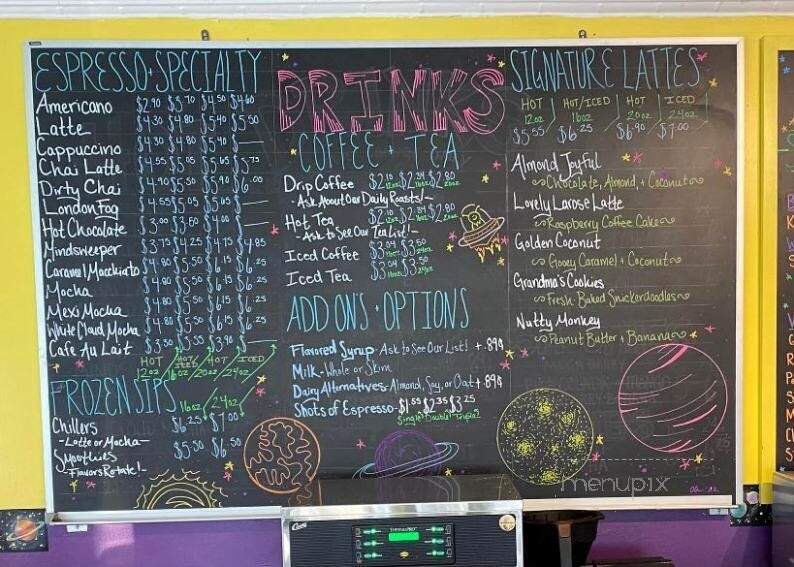 ESPRESSO + SPECIALTY
Americano $2.90 $3.70 $4.50 $4.60
Latte $4.30 $4.80 $5.40 $5.50
Cappuccino $4.30 $4.80 $5.40 —
Chai Latte $4.55 $5.05 $5.65 $5.75
Dirty Chai $4.90 $5.50 $5.90 $6.00
London Fog $4.55 $5.05 $5.65 —
Hot Chocolate $3.00 $3.50 $4.00 —
Mindsweeper $3.75 $4.25 $4.75 $4.85
Caramel Macchiato $4.80 $5.50 $6.15 $6.25
Mocha $4.80 $5.50 $6.15 $6.25
Mexi Mocha $4.80 $5.50 $6.15 $6.25
White Cloud Mocha $4.80 $5.50 $6.15 $6.25
Cafe Au Lait $3.30 $3.55 $3.90 —
HOT HOT/ICED HOT ICED
12oz 16oz 20oz 24oz
FROZEN SIPS
16oz 24oz
Chillers $6.25 $7.00
-Latte or Mocha-
Smoothies $5.50 $6.50
-Flavors Rotate!-
DRINKS
COFFEE + TEA
Drip Coffee $2.10 12oz $2.34 16oz $2.80 20oz
-Ask About Our Daily Roasts!-
Hot Tea $2.10 12oz $2.34 16oz $2.80 20oz
-Ask to See Our Tea List!-
Iced Coffee $3.04 16oz $3.50 24oz
Iced Tea $3.04 16oz $3.50 24oz
ADD ONS + OPTIONS
Flavored Syrup - Ask to See Our List! + .89¢
Milk - Whole or Skim
Dairy Alternatives - Almond, Soy, or Oat + .89¢
Shots of Espresso - $1.55 $2.35 $3.25
Single Double Triple
SIGNATURE LATTES
HOT HOT/ICED HOT ICED
12oz 16oz 20oz 24oz
$5.55 $6.25 $6.90 $7.00
Almond Joyful
Chocolate, Almond, + Coconut
Lovely Larose Latte
Raspberry Coffee Cake
Golden Coconut
Gooey Caramel + Coconut
Grandma's Cookies
Fresh Baked Snickerdoodles
Nutty Monkey
Peanut Butter + Banana
menupix